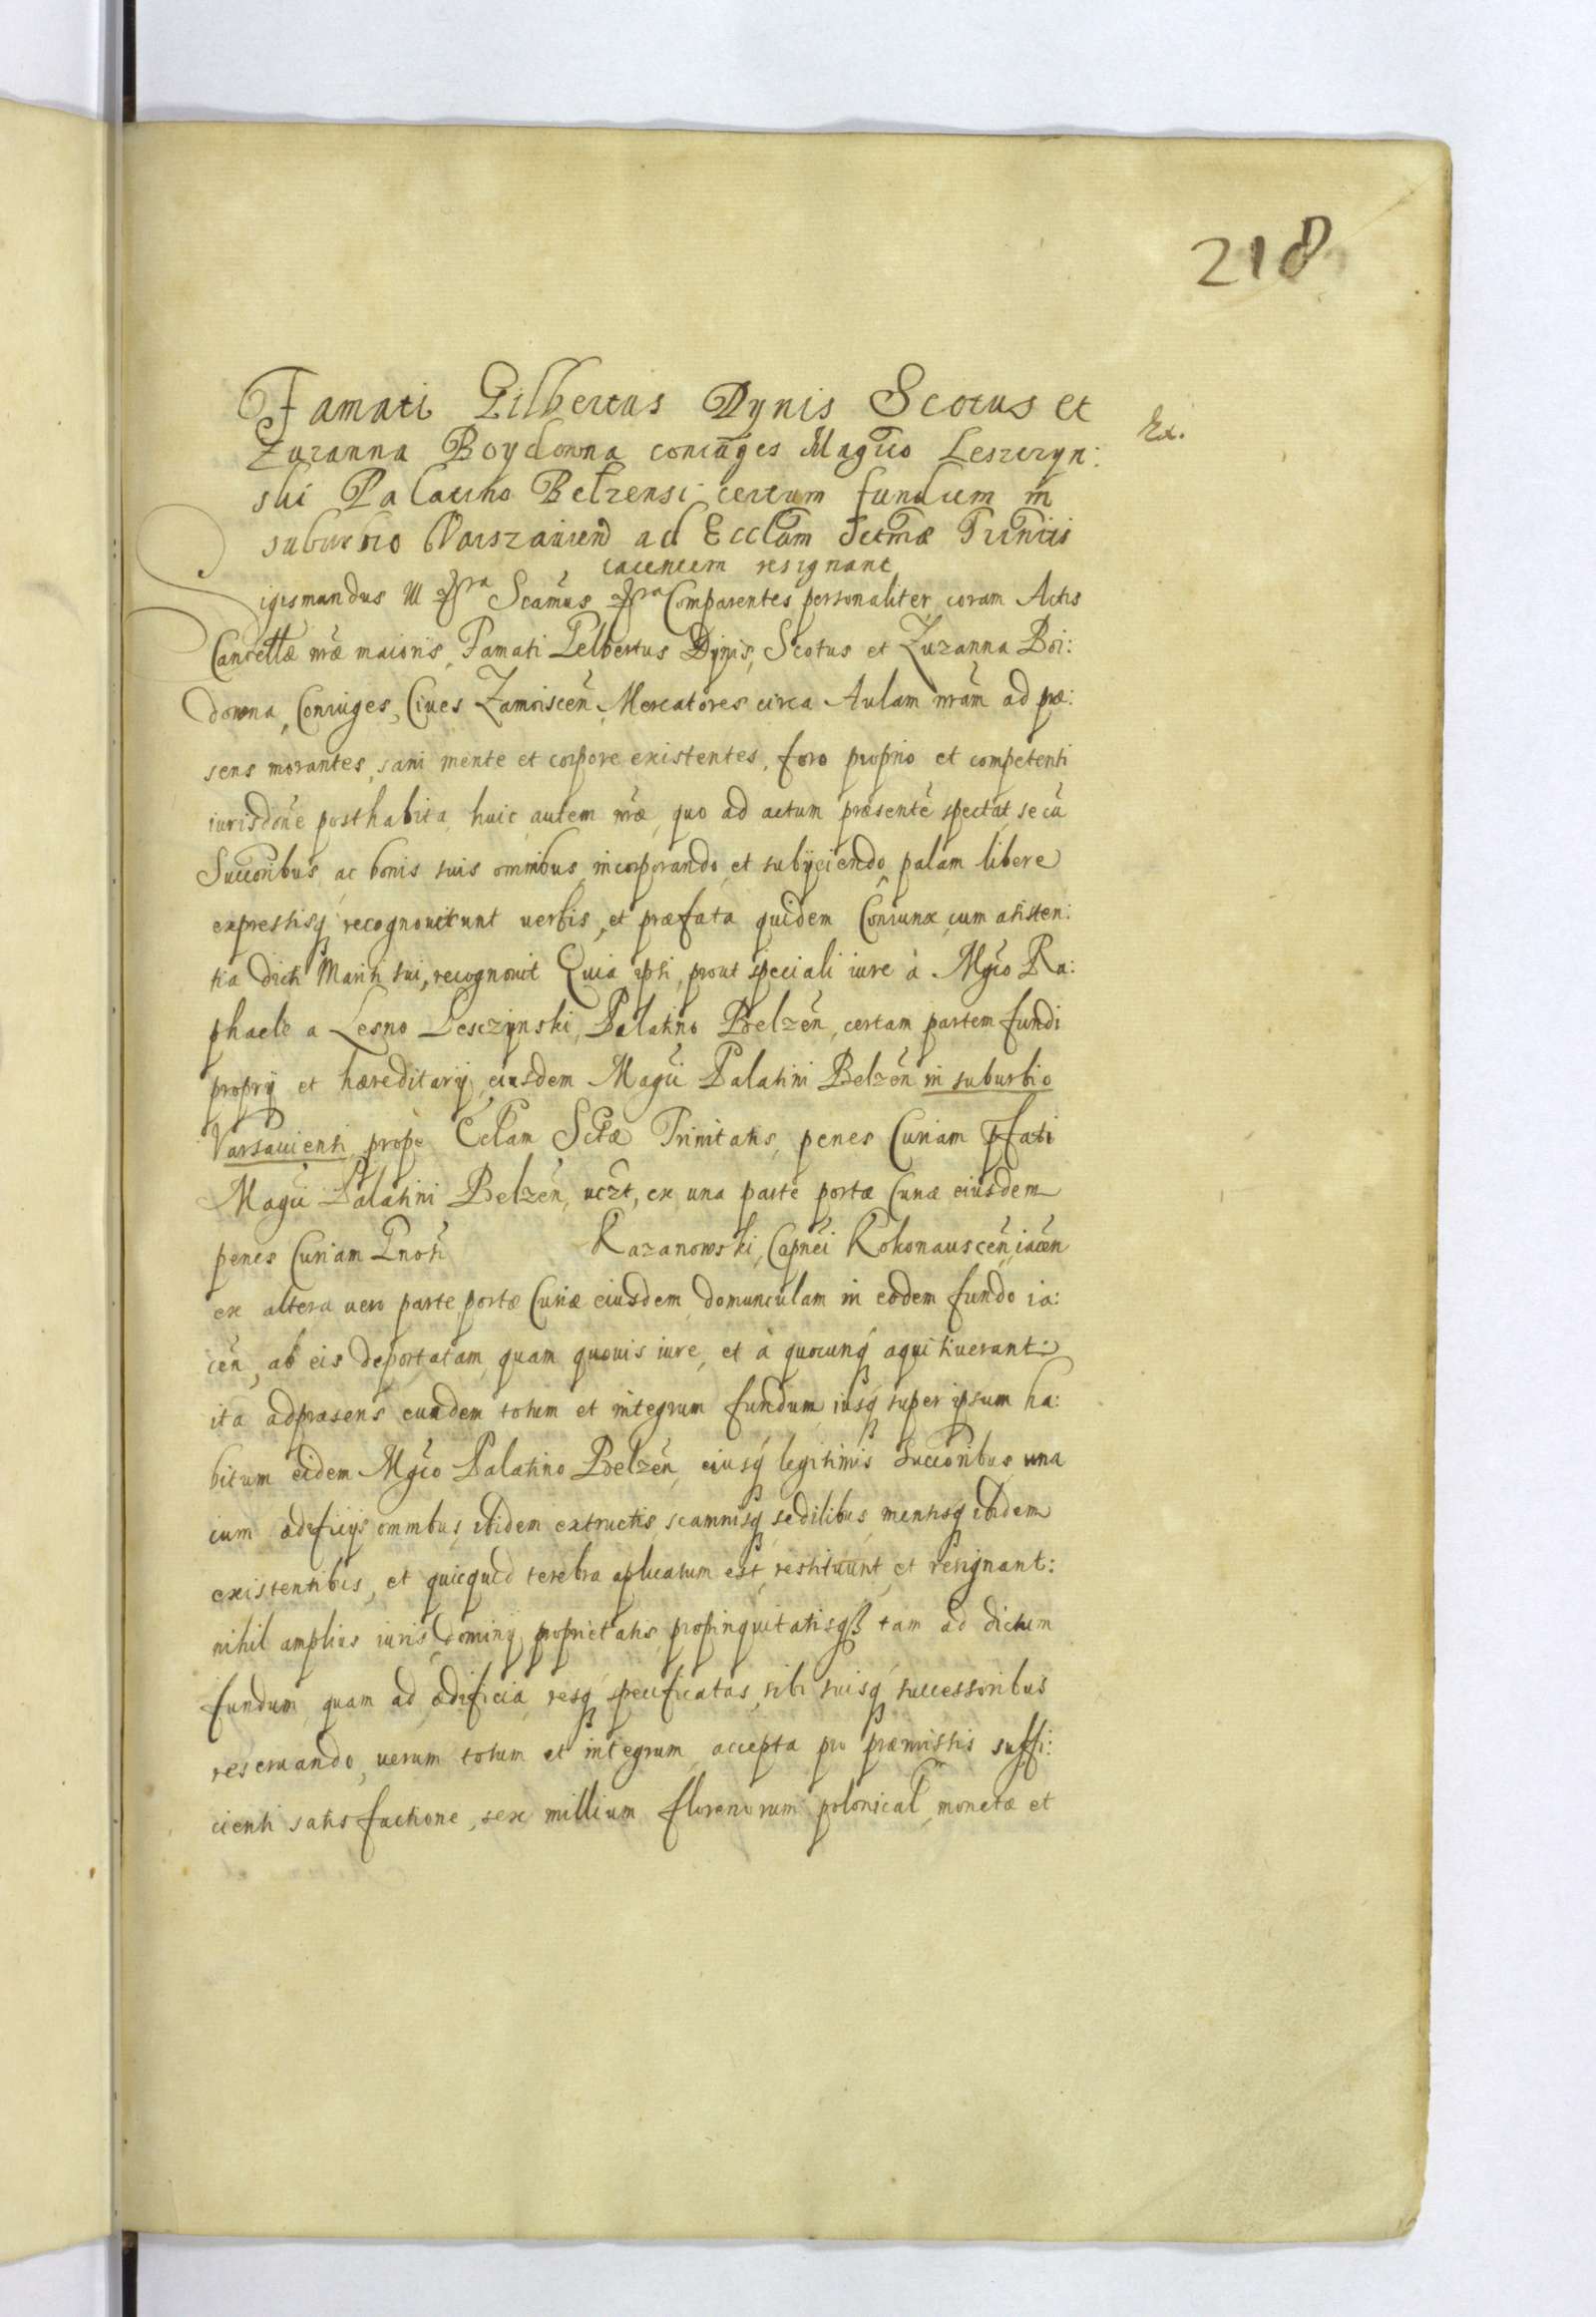 218
Famati Gilbertus Dynis Scotus et
Zuzanna Boydowna coniuges Magco Leszczyn:
ski Palatino Belzensi certum fundum in
suburbio Varszavien ad Ecclam Sctmæ Trinitis
iacentem resignant
Ex.
Sigismundus III Scamus Comparentes personaliter coram Actis
Cancellæ nræ maioris, Famati Gelbertus Dynis, Scotus et Zuzanna Boi:
downa, Coniuges, Ciues Zamoiscen, Mercatores circa Aulam nram ad præ:
sens morantes, sani mente et corpore existentes, foro proprio et competenti
iurisdone posthabita, huic autem nræ, quo ad actum præsente spectat, se cu
Succoribus ac bonis suis omnibus incorporando et subyciendo, palam libere
expressisq recognouerunt uerbis, et præfata quidem Coniunx cum assisten:
tia dicti Mariti sui, recognouit Quia ipsi, prout speciali iure à Mgco Ra:
phaele a Lesno Lesczynski, Palatino Belzen, certam partem fundi
proprij et hæreditarij eiusdem Magci Palatini Belzen in suburbio
Varsauiensi prope Eclam Sctæ Trinitatis, penes Curiam pfati
Magci Palatini Belzen, uczt, ex una parte portæ Curiæ eiusdem
penes Curiam Gnosi Kazanowski, Capnei Kokonauscen, iacen
ex altera uero parte portæ Curiæ eiusdem domunculam in eodem fundo ia:
cen, ab eis deportatam, quam quouis iure, et à quocunq aquisiuerant:
ita adpræsens eundem totum et integrum fundum iusq super ipsum ha:
bitum eidem Mgco Palatino Belzen, eiusq legitimis Succoribus una
cum ædificijs omnibus ibidem extructis, scamnisq sedilibus mensisq ibidem
existentibus, et quicquid terebra aplicatum est, restituunt et resignant:
nihil amplius iuris, dominij, proprietatis, propinquitatisq tam ad dictum
fundum quam ad ædificia resq specificatas, sibi suisq successoribus
reseruando, uerum totum et integrum accepta pro præmissis suffi:
cienti satisfactione, sex millium florenorum polonical, monetæ et